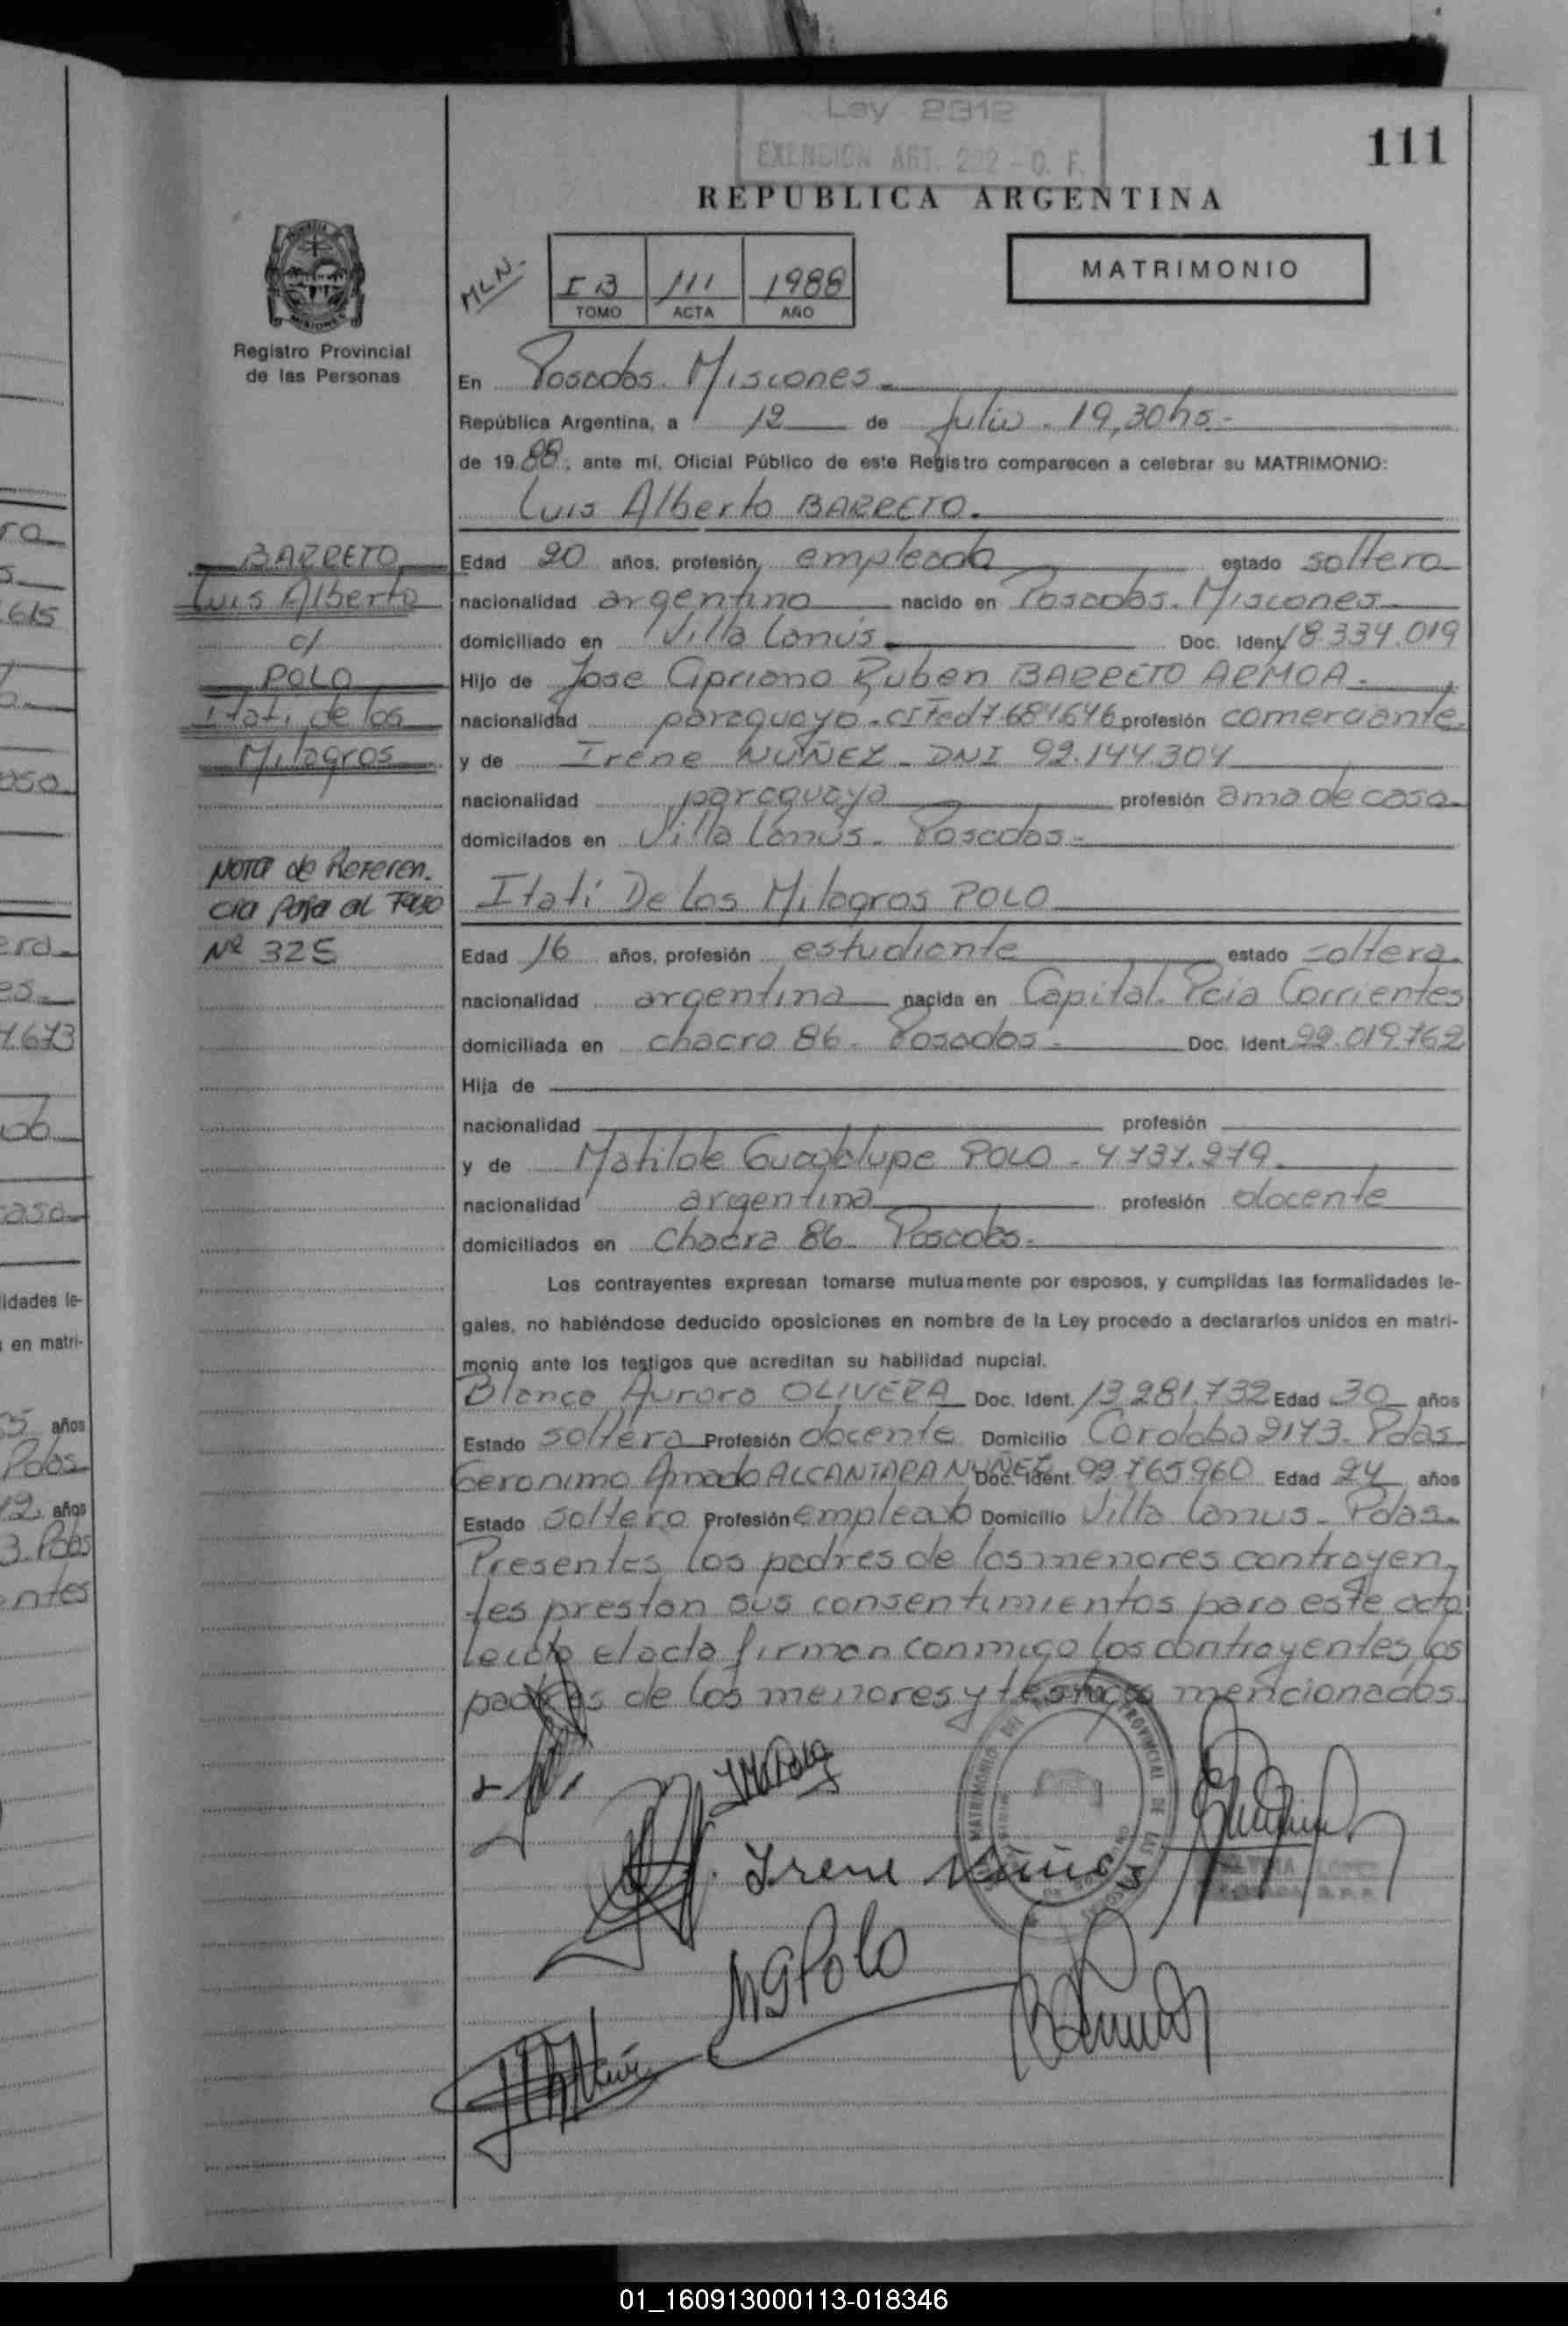 Ley 2312
EXENCION ART. 292 - C. F.
111
REPUBLICA ARGENTINA
MLN.
I B 111 1988
TOMO ACTA AÑO
MATRIMONIO
Registro Provincial
de las Personas
En Posadas. Misiones.
República Argentina, a 12 de Julio. 19,30hs.-
de 19 88, ante mí, Oficial Público de este Registro comparecen a celebrar su MATRIMONIO:
Luis Alberto BARRETO.
BARRETO
Luis Alberto
c/
POLO
Itati de los
Milagros
Nota de Referen.
cia pasa al Folio
Nº 325
Edad 20 años, profesión, empleado estado soltero
nacionalidad argentino nacido en Posadas. Misiones
domiciliado en Villa Lanús Doc. Ident 18.334.019
Hijo de Jose Cipriano Ruben BARRETO ARMOA.
nacionalidad paraguayo. CI Fed 7 684646 profesión comerciante.
y de Irene NUÑEZ - DNI 92.144.304
nacionalidad paraguaya profesión ama de casa
domicilados en Villa Lanús. Posadas-
Itatí De Los Milagros POLO
Edad 16 años, profesión estudiante estado soltera.
nacionalidad argentina nacida en Capital. Pcia Corrientes
domiciliada en chacra 86. Posadas. Doc. Ident 22.019.762
Hija de
nacionalidad profesión
y de Matilde Guadalupe POLO - 4.737.979.
nacionalidad argentina profesión docente
domiciliados en Chacra 86. Posadas.
Los contrayentes expresan tomarse mutuamente por esposos, y cumplidas las formalidades le-
gales, no habiéndose deducido oposiciones en nombre de la Ley procedo a declararlos unidos en matri-
monio ante los testigos que acreditan su habilidad nupcial.
Blanca Aurora OLIVERA Doc. Ident. 13.281.732 Edad 30 años
Estado soltera Profesión docente Domicilio Cordoba 2173. Pdas
Geronimo Amado ALCANTARA NUÑEZ Doc. Ident. 92.765960 Edad 24 años
Estado soltero Profesión empleado Domicilio Villa Lanus- Pdas.
Presentes los padres de los menores contrayen,
tes prestan sus consentimientos para este acto
leido el acta firman conmigo los contrayentes, los
padres de los menores y testigos mencionados.
Irene Nuñez
MGPolo
01_160913000113-018346